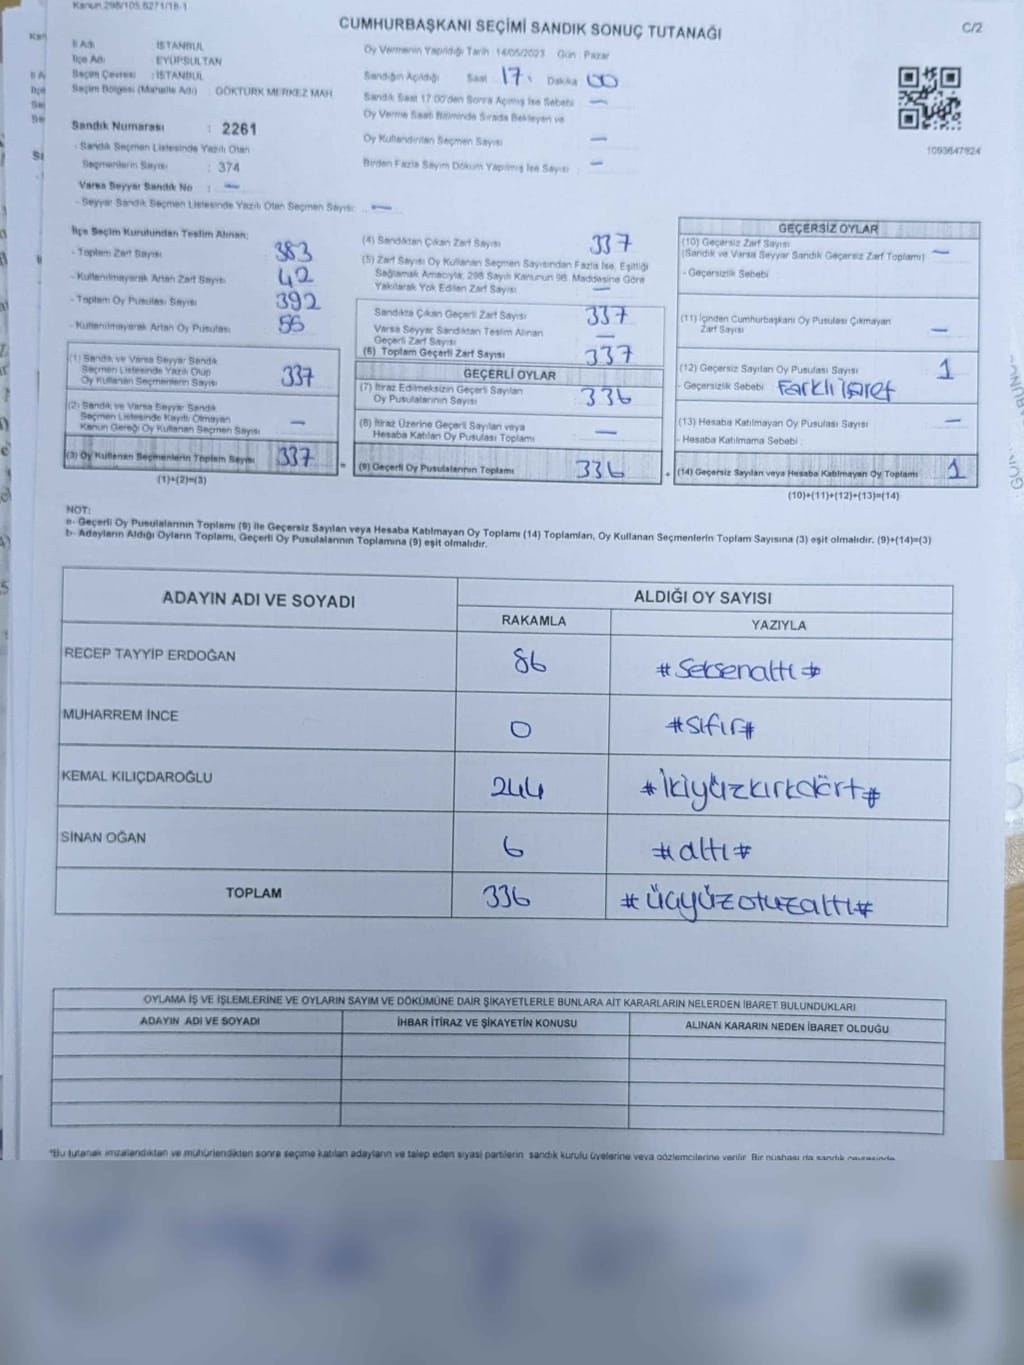 Kanun 298/105.6271/16-1
CUMHURBAŞKANI SEÇİMİ SANDIK SONUÇ TUTANAĞI
C/2
İl Adı : İSTANBUL
İlçe Adı : EYÜPSULTAN
Seçim Çevresi : İSTANBUL
Seçim Bölgesi (Mahalle Adı) : GÖKTÜRK MERKEZ MAH.
Sandık Numarası : 2261
- Sandık Seçmen Listesinde Yazılı Olan
Seçmenlerin Sayısı : 374
Varsa Seyyar Sandık No : —
- Seyyar Sandık Seçmen Listesinde Yazılı Olan Seçmen Sayısı: —
Oy Vermenin Yapıldığı Tarih : 14/05/2023 Gün : Pazar
Sandığın Açıldığı Saat : 17 Dakika 00
Sandık Saat 17.00'den Sonra Açılmış İse Sebebi —
Oy Verme Saati Bitiminde Sırada Bekleyen ve
Oy Kullandırılan Seçmen Sayısı —
Birden Fazla Sayım Döküm Yapılmış İse Sayısı : —
1093647824
İlçe Seçim Kurulundan Teslim Alınan;
- Toplam Zarf Sayısı 383
- Kullanılmayarak Artan Zarf Sayısı 42
- Toplam Oy Pusulası Sayısı 392
- Kullanılmayarak Artan Oy Pusulası 56
(1) Sandık ve Varsa Seyyar Sandık
Seçmen Listesinde Yazılı Olup
Oy Kullanan Seçmenlerin Sayısı 337
(2) Sandık ve Varsa Seyyar Sandık
Seçmen Listesinde Kayıtlı Olmayan
Kanun Gereği Oy Kullanan Seçmen Sayısı —
(3) Oy Kullanan Seçmenlerin Toplam Sayısı 337
(1)+(2)=(3)
=
(4) Sandıktan Çıkan Zarf Sayısı 337
(5) Zarf Sayısı Oy Kullanan Seçmen Sayısından Fazla İse, Eşitliği
Sağlamak Amacıyla, 298 Sayılı Kanunun 98. Maddesine Göre
Yakılarak Yok Edilen Zarf Sayısı —
Sandıkta Çıkan Geçerli Zarf Sayısı 337
Varsa Seyyar Sandıktan Teslim Alınan
Geçerli Zarf Sayısı —
(6) Toplam Geçerli Zarf Sayısı 337
GEÇERLİ OYLAR
(7) İtiraz Edilmeksizin Geçerli Sayılan
Oy Pusulalarının Sayısı 336
(8) İtiraz Üzerine Geçerli Sayılan veya
Hesaba Katılan Oy Pusulası Toplamı —
(9) Geçerli Oy Pusulalarının Toplamı 336
+
GEÇERSİZ OYLAR
(10) Geçersiz Zarf Sayısı
(Sandık ve Varsa Seyyar Sandık Geçersiz Zarf Toplamı) —
- Geçersizlik Sebebi
(11) İçinden Cumhurbaşkanı Oy Pusulası Çıkmayan
Zarf Sayısı —
(12) Geçersiz Sayılan Oy Pusulası Sayısı 1
- Geçersizlik Sebebi : Farklı işaret
(13) Hesaba Katılmayan Oy Pusulası Sayısı —
- Hesaba Katılmama Sebebi :
(14) Geçersiz Sayılan veya Hesaba Katılmayan Oy Toplamı 1
(10)+(11)+(12)+(13)=(14)
NOT:
a- Geçerli Oy Pusulalarının Toplamı (9) ile Geçersiz Sayılan veya Hesaba Katılmayan Oy Toplamı (14) Toplamları, Oy Kullanan Seçmenlerin Toplam Sayısına (3) eşit olmalıdır. (9)+(14)=(3)
b- Adayların Aldığı Oyların Toplamı, Geçerli Oy Pusulalarının Toplamına (9) eşit olmalıdır.
ADAYIN ADI VE SOYADI ALDIĞI OY SAYISI
RAKAMLA YAZIYLA
RECEP TAYYİP ERDOĞAN 86 #Seksenaltı#
MUHARREM İNCE 0 #sıfır#
KEMAL KILIÇDAROĞLU 244 #İkiyüzkırkdört#
SİNAN OĞAN 6 #altı#
TOPLAM 336 #üçyüzotuzaltı#
OYLAMA İŞ VE İŞLEMLERİNE VE OYLARIN SAYIM VE DÖKÜMÜNE DAİR ŞİKAYETLERLE BUNLARA AİT KARARLARIN NELERDEN İBARET BULUNDUKLARI
ADAYIN ADI VE SOYADI İHBAR İTİRAZ VE ŞİKAYETİN KONUSU ALINAN KARARIN NEDEN İBARET OLDUĞU
*Bu tutanak imzalandıktan ve mühürlendikten sonra seçime katılan adayların ve talep eden siyasi partilerin sandık kurulu üyelerine veya gözlemcilerine verilir. Bir nüshası da sandık çevresinde